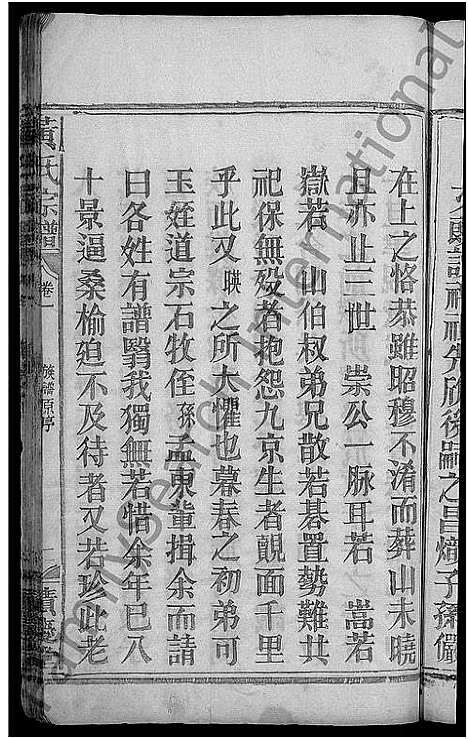 之昌熾子孫儼
在上之恪恭雖昭穆不淆而葬山未曉
且亦止三世 崇公一脉耳若 嵩若
嶽若 山伯叔弟兄散若碁置勢難共
祀保無歿者抱怨九京生者覿面千里
乎此又瑛之所大懼也暮春之初弟可
玉姪道宗石牧侄孫孟東輩揖余而請
曰各姓有譜翳我獨無若惜余年已八
十景逼桑榆廹不及待者又若珍此老
黃氏宗譜 卷一 族譜原序
familysearch International